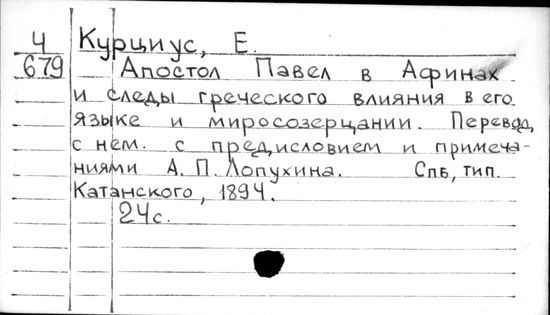 Ч Курциус, Е.
679 Апостол Павел в Афинах
и следы греческого влияния в его
языке и миросозерцании. Перевод
с нем. с предисловием и примеча-
ниями А. П. Лопухина. Спб, тип.
Катанского, 1894.
24с.